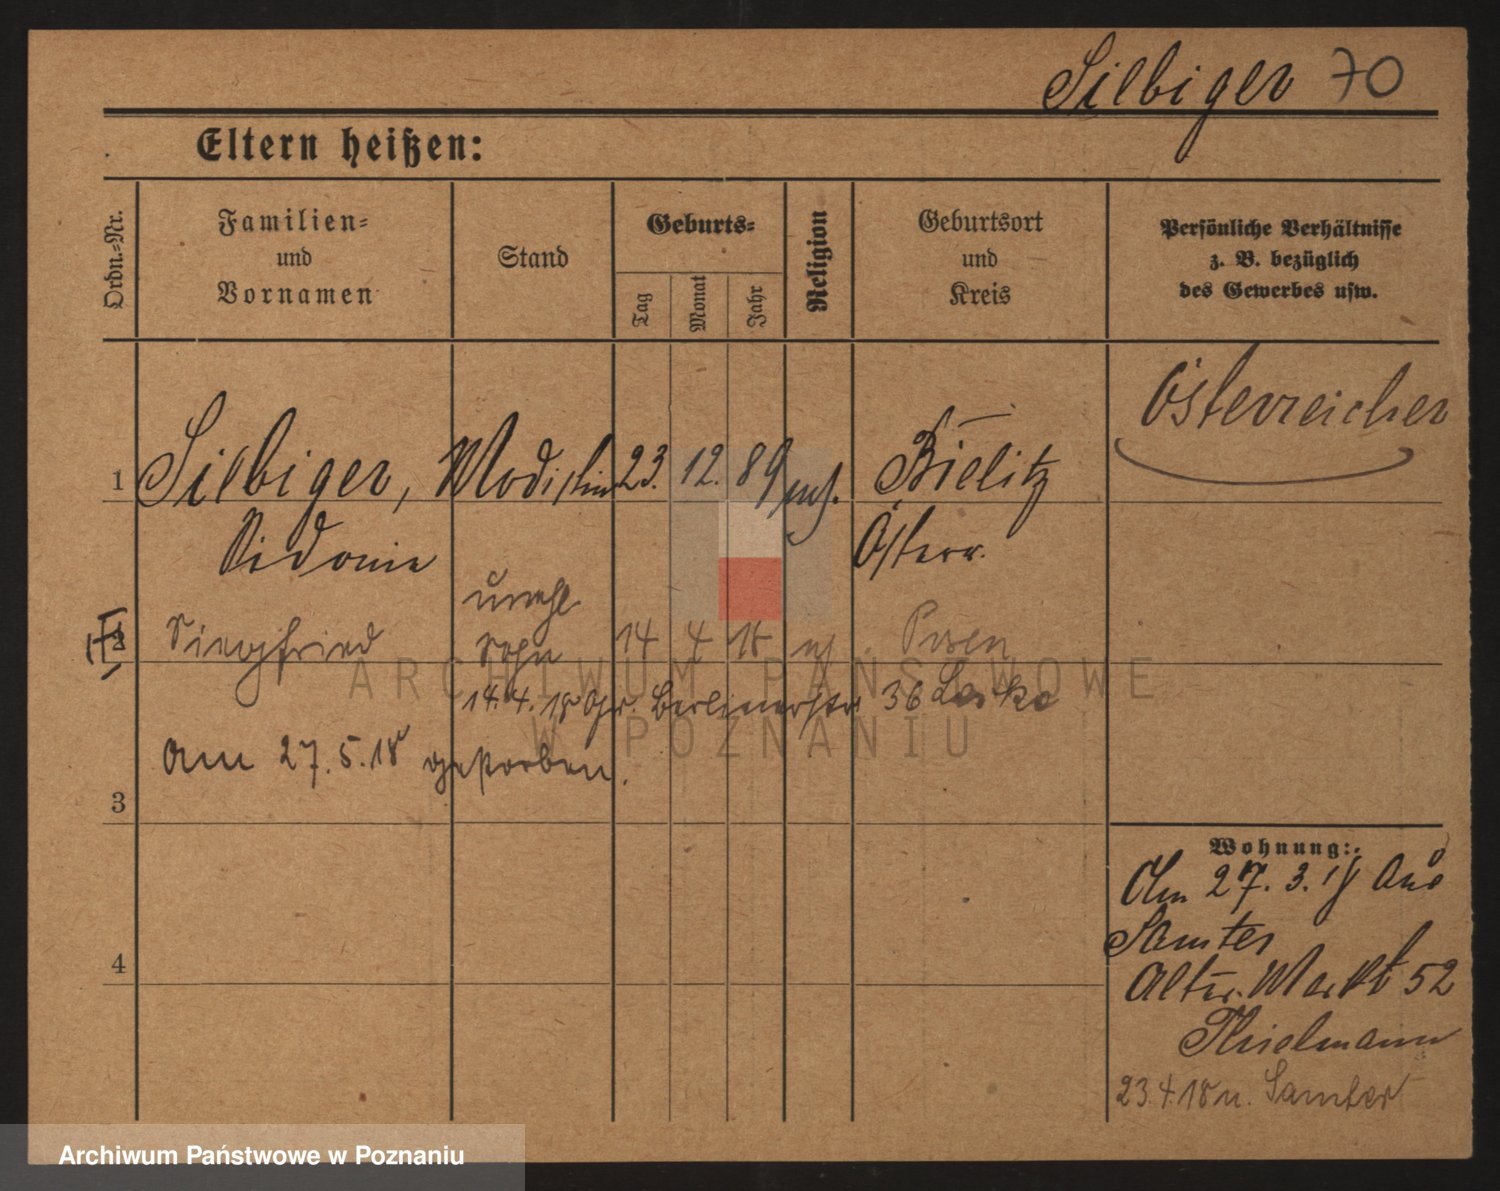 Silbiger 70
Eltern heißen:
Ordn.=Nr.
Familien=
und
Vornamen
Stand
Geburts=
Tag
Monat
Jahr
Religion
Geburtsort
und
Kreis
Persönliche Verhältnisse
z. B. bezüglich
des Gewerbes usw.
Österreicher
1 Silbiger, Modistin 23. 12. 89 mos. Bielitz
Sidonie Österr.
unehl
2 Siegfried Sohn 14 4 18 Posen
14.4.18 Berlinerstr 36
am 27.5.18 gestorben.
3
4
Wohnung:
Am 27. 3. aus
Samter
Alter Markt 52
Thielmann
23.4.18 n. Samter
ARCHIWUM PAŃSTWOWE
W POZNANIU
Archiwum Państwowe w Poznaniu